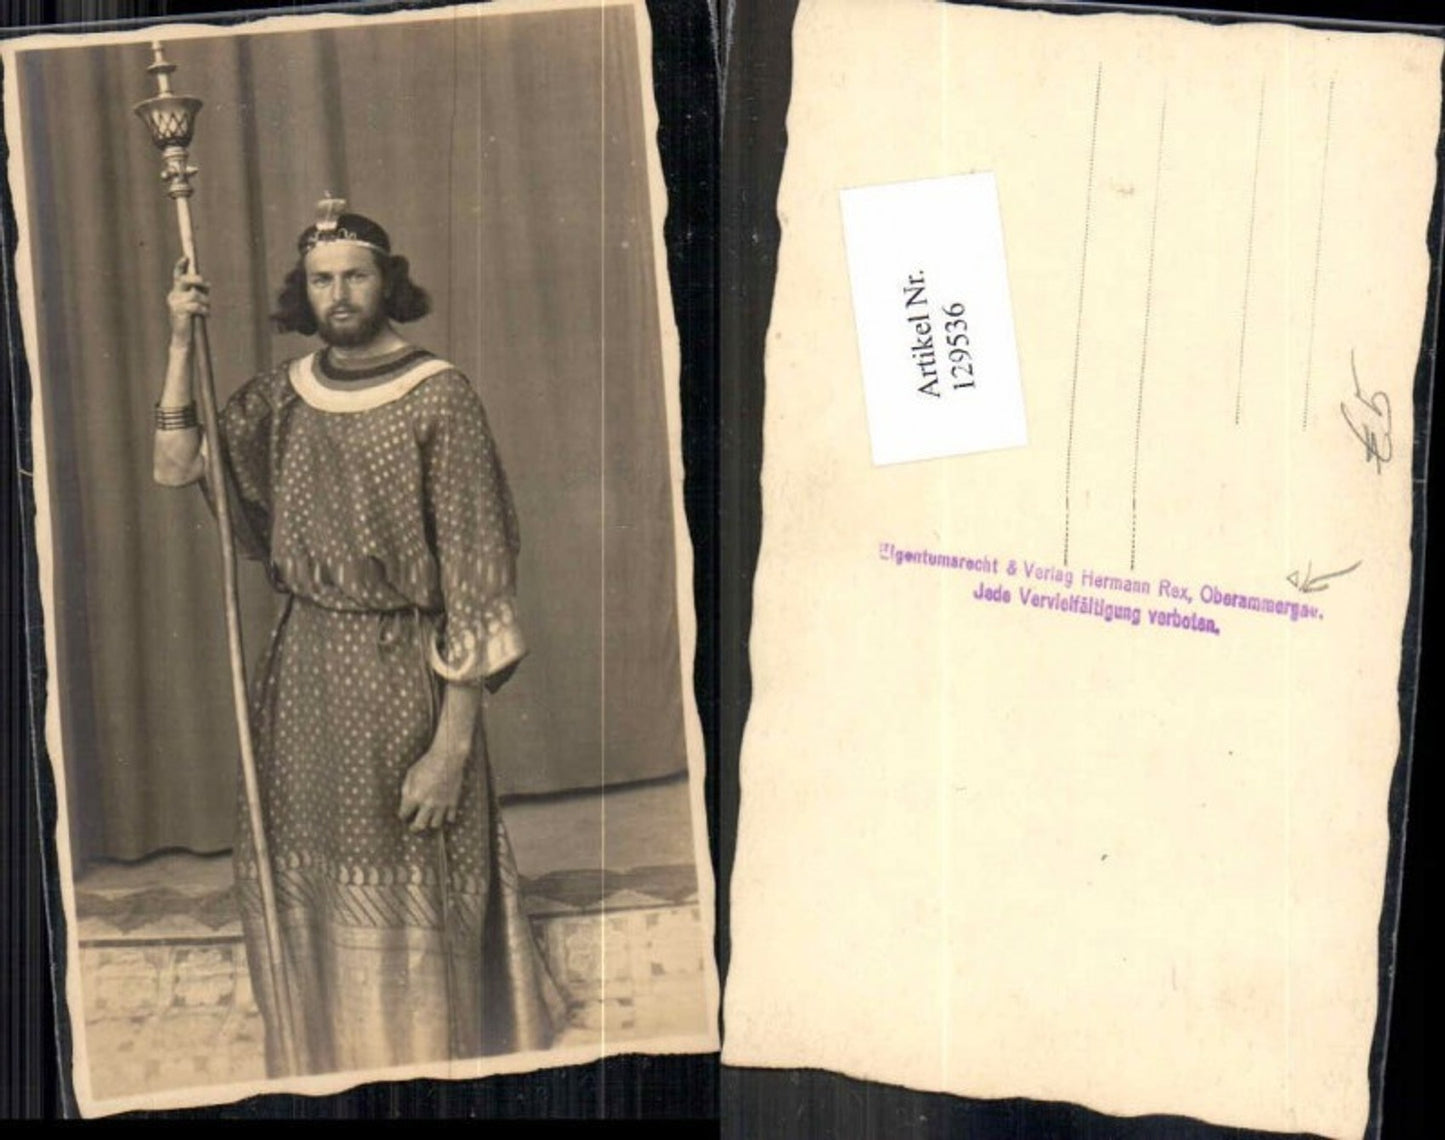 Artikel Nr.
129536
Eigentumsrecht & Verlag Hermann Rex, Oberammergau.
Jede Vervielfältigung verboten.